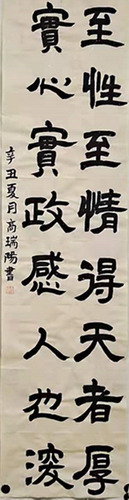 至性至情得天者厚
實心實政感人也深
辛丑夏月高瑞陽書